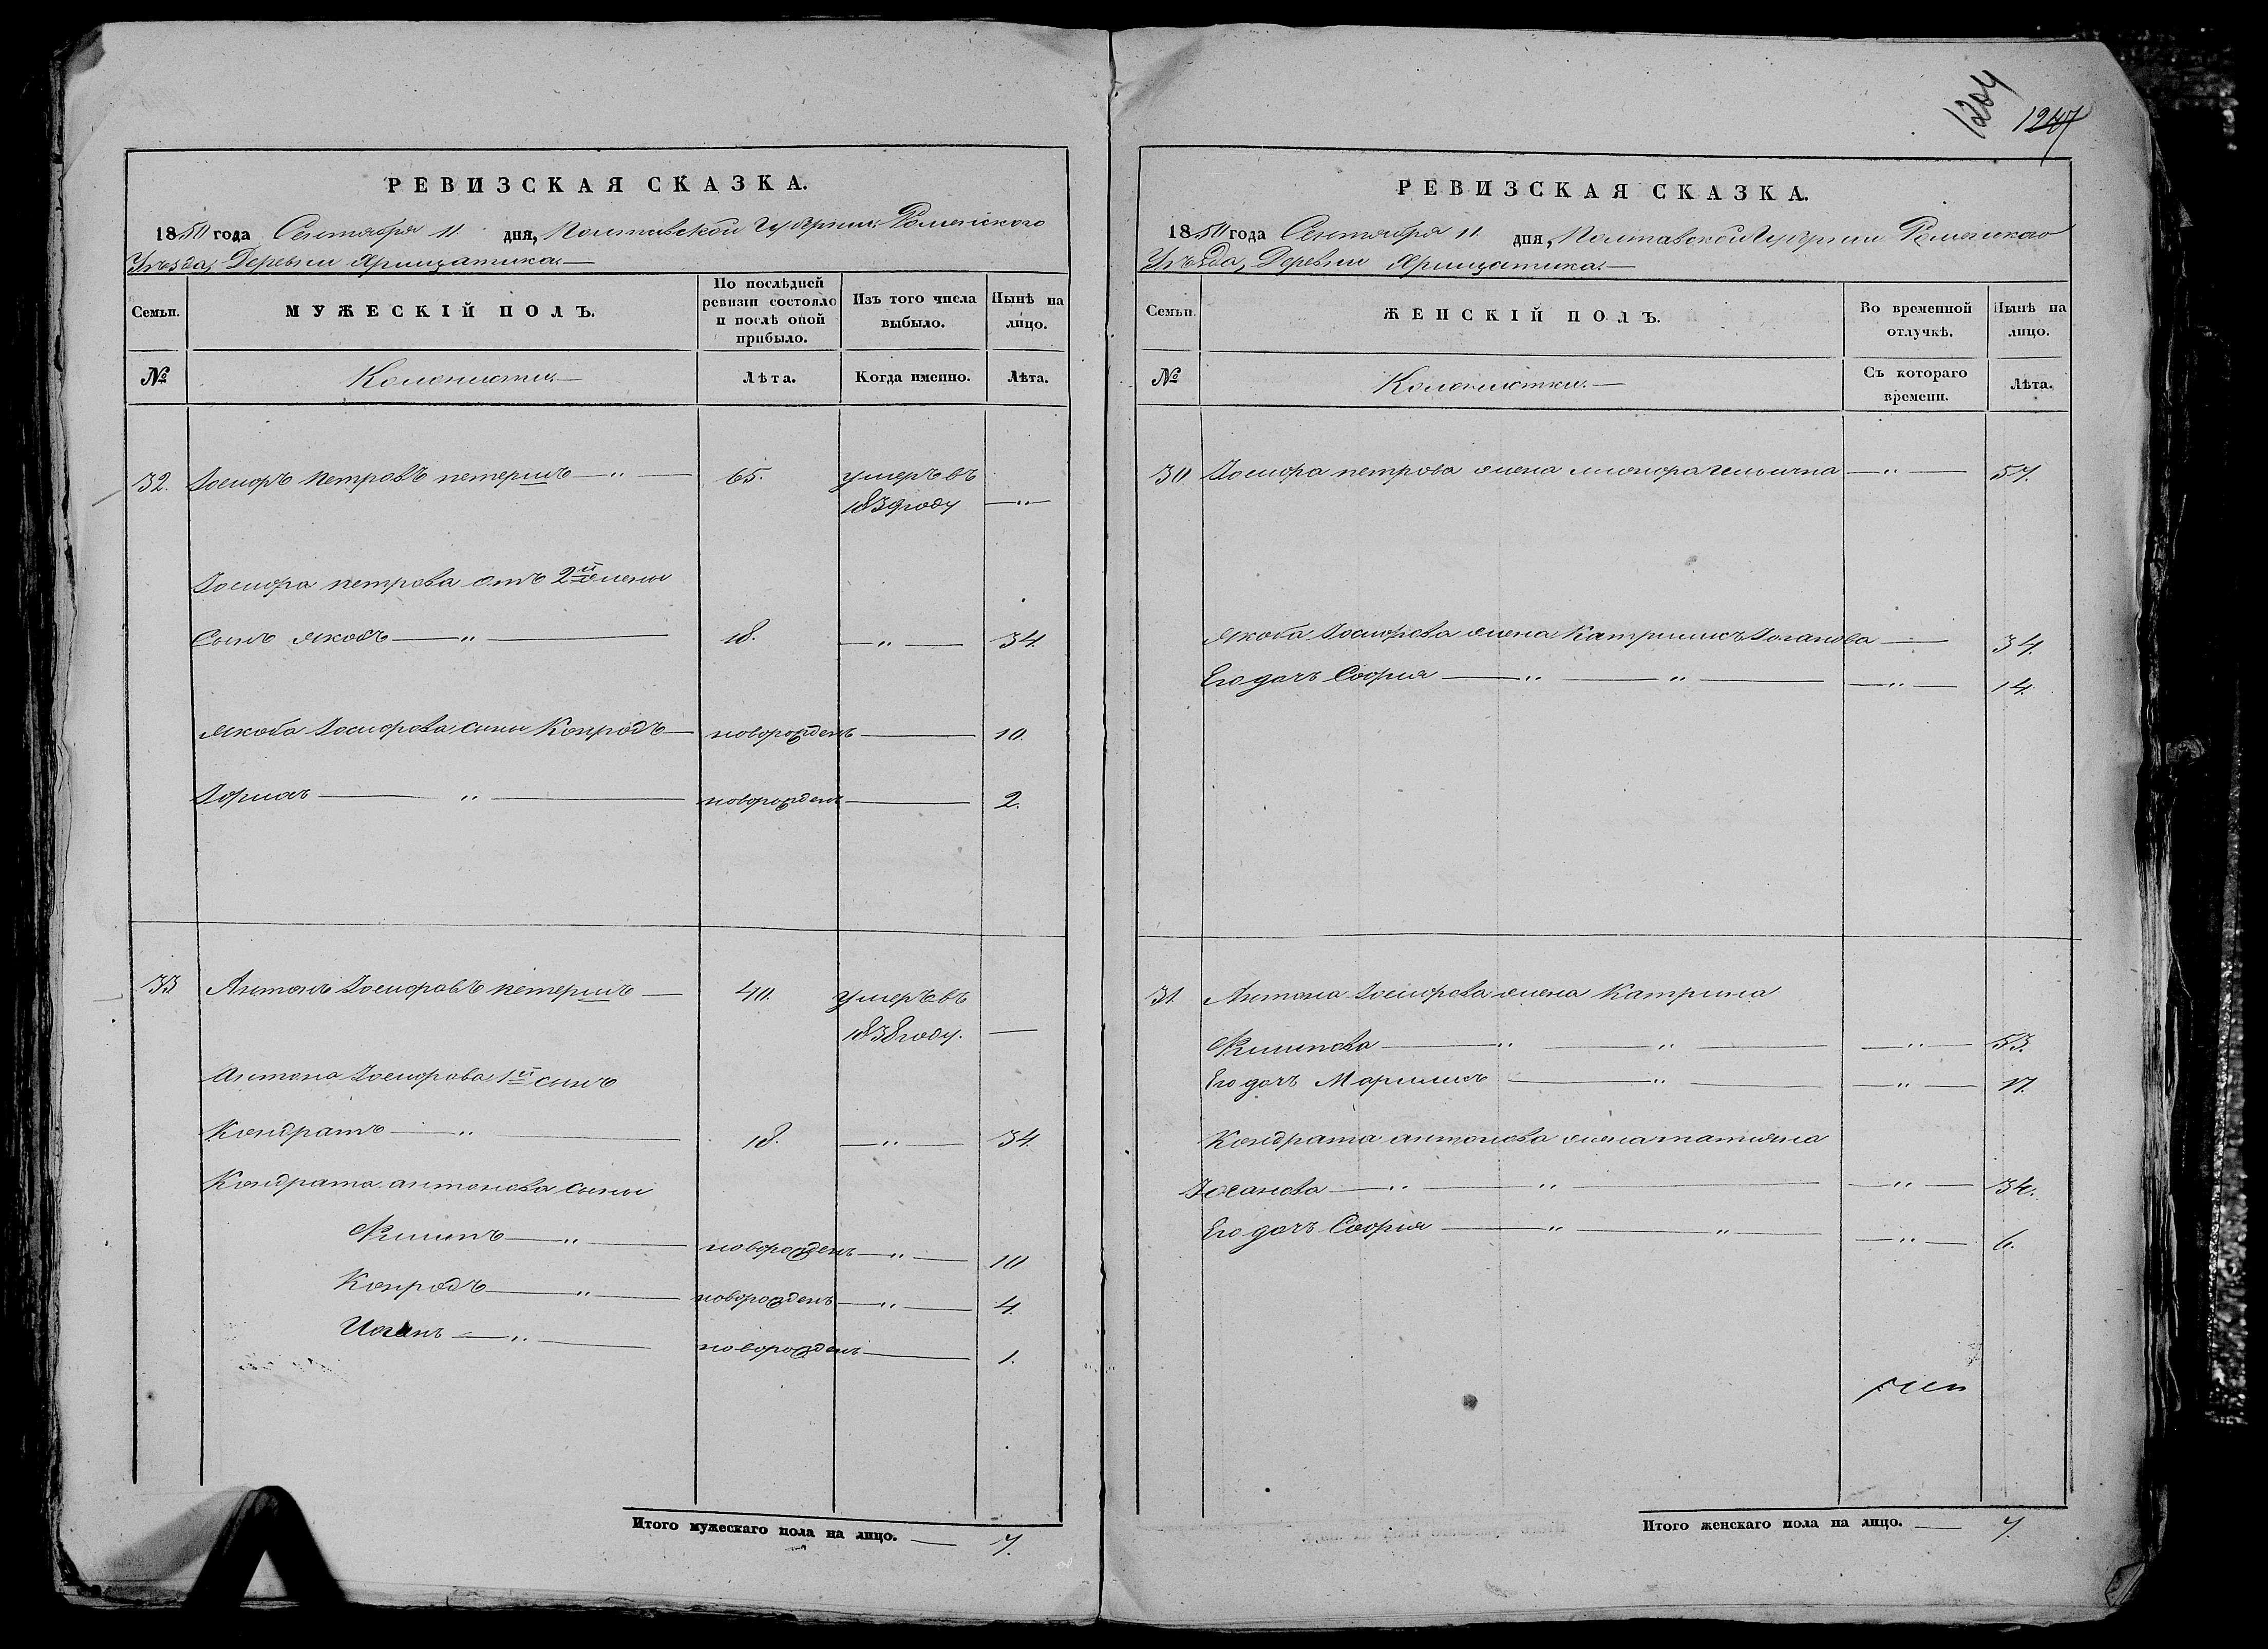 РЕВИЗСКАЯ СКАЗКА.
1850 года Сентября 11. дня, Полтавской Губернии Роменского
Уѣзда, Деревни
Семьи.
МУЖЕСКІЙ ПОЛЪ.
По послѣдней ревизіи состояло и послѣ оной прибыло.
Изъ того числа выбыло.
Нынѣ на лицо.
№
Колонисты.
Лѣта.
Когда именно.
Лѣта.
32. Петровъ петершъ — " — 65. умеръ въ
1839 году — " —
петрова отъ 2й жены
Сынъ Якобъ — " — 18. — " — 34.
Якоба сыны Конродъ — новорожденъ — 10.
— " — новорожденъ — 2.
33 Антонъ петершъ — 40. умеръ въ
1838 году. —
Антона 1й сынъ
Кондратъ — " — 18. — " — 34.
Кондрата антонова сыны
Филипъ — " — новорожденъ — " — 10
Конродъ — " — новорожденъ — " — 4.
Иоганъ — " — новорожденъ — 1.
Итого мужескаго пола на лицо. — 7.
1204
1247
РЕВИЗСКАЯ СКАЗКА.
1850 года Сентября 11 дня, Полтавской Губернии Роменского
Уѣзда, Деревни
Семьи.
ЖЕНСКІЙ ПОЛЪ.
Во временной отлучкѣ.
Нынѣ на лицо.
№
Колонистки. —
Съ котораго времени.
Лѣта.
30 петрова жена — " — 57.
Якоба жена Катрилисъ — 34.
Его дочь София — " — " — " — 14.
31. Антона жена Катрина
Филипова — " — " — " — 53.
Его дочь — " — " — 17.
Кондрата антонова жена татияна
Иоганова — " — " — " — 34.
Его дочь София — " — " — " — 6.
Итого женскаго пола на лицо. — 7.